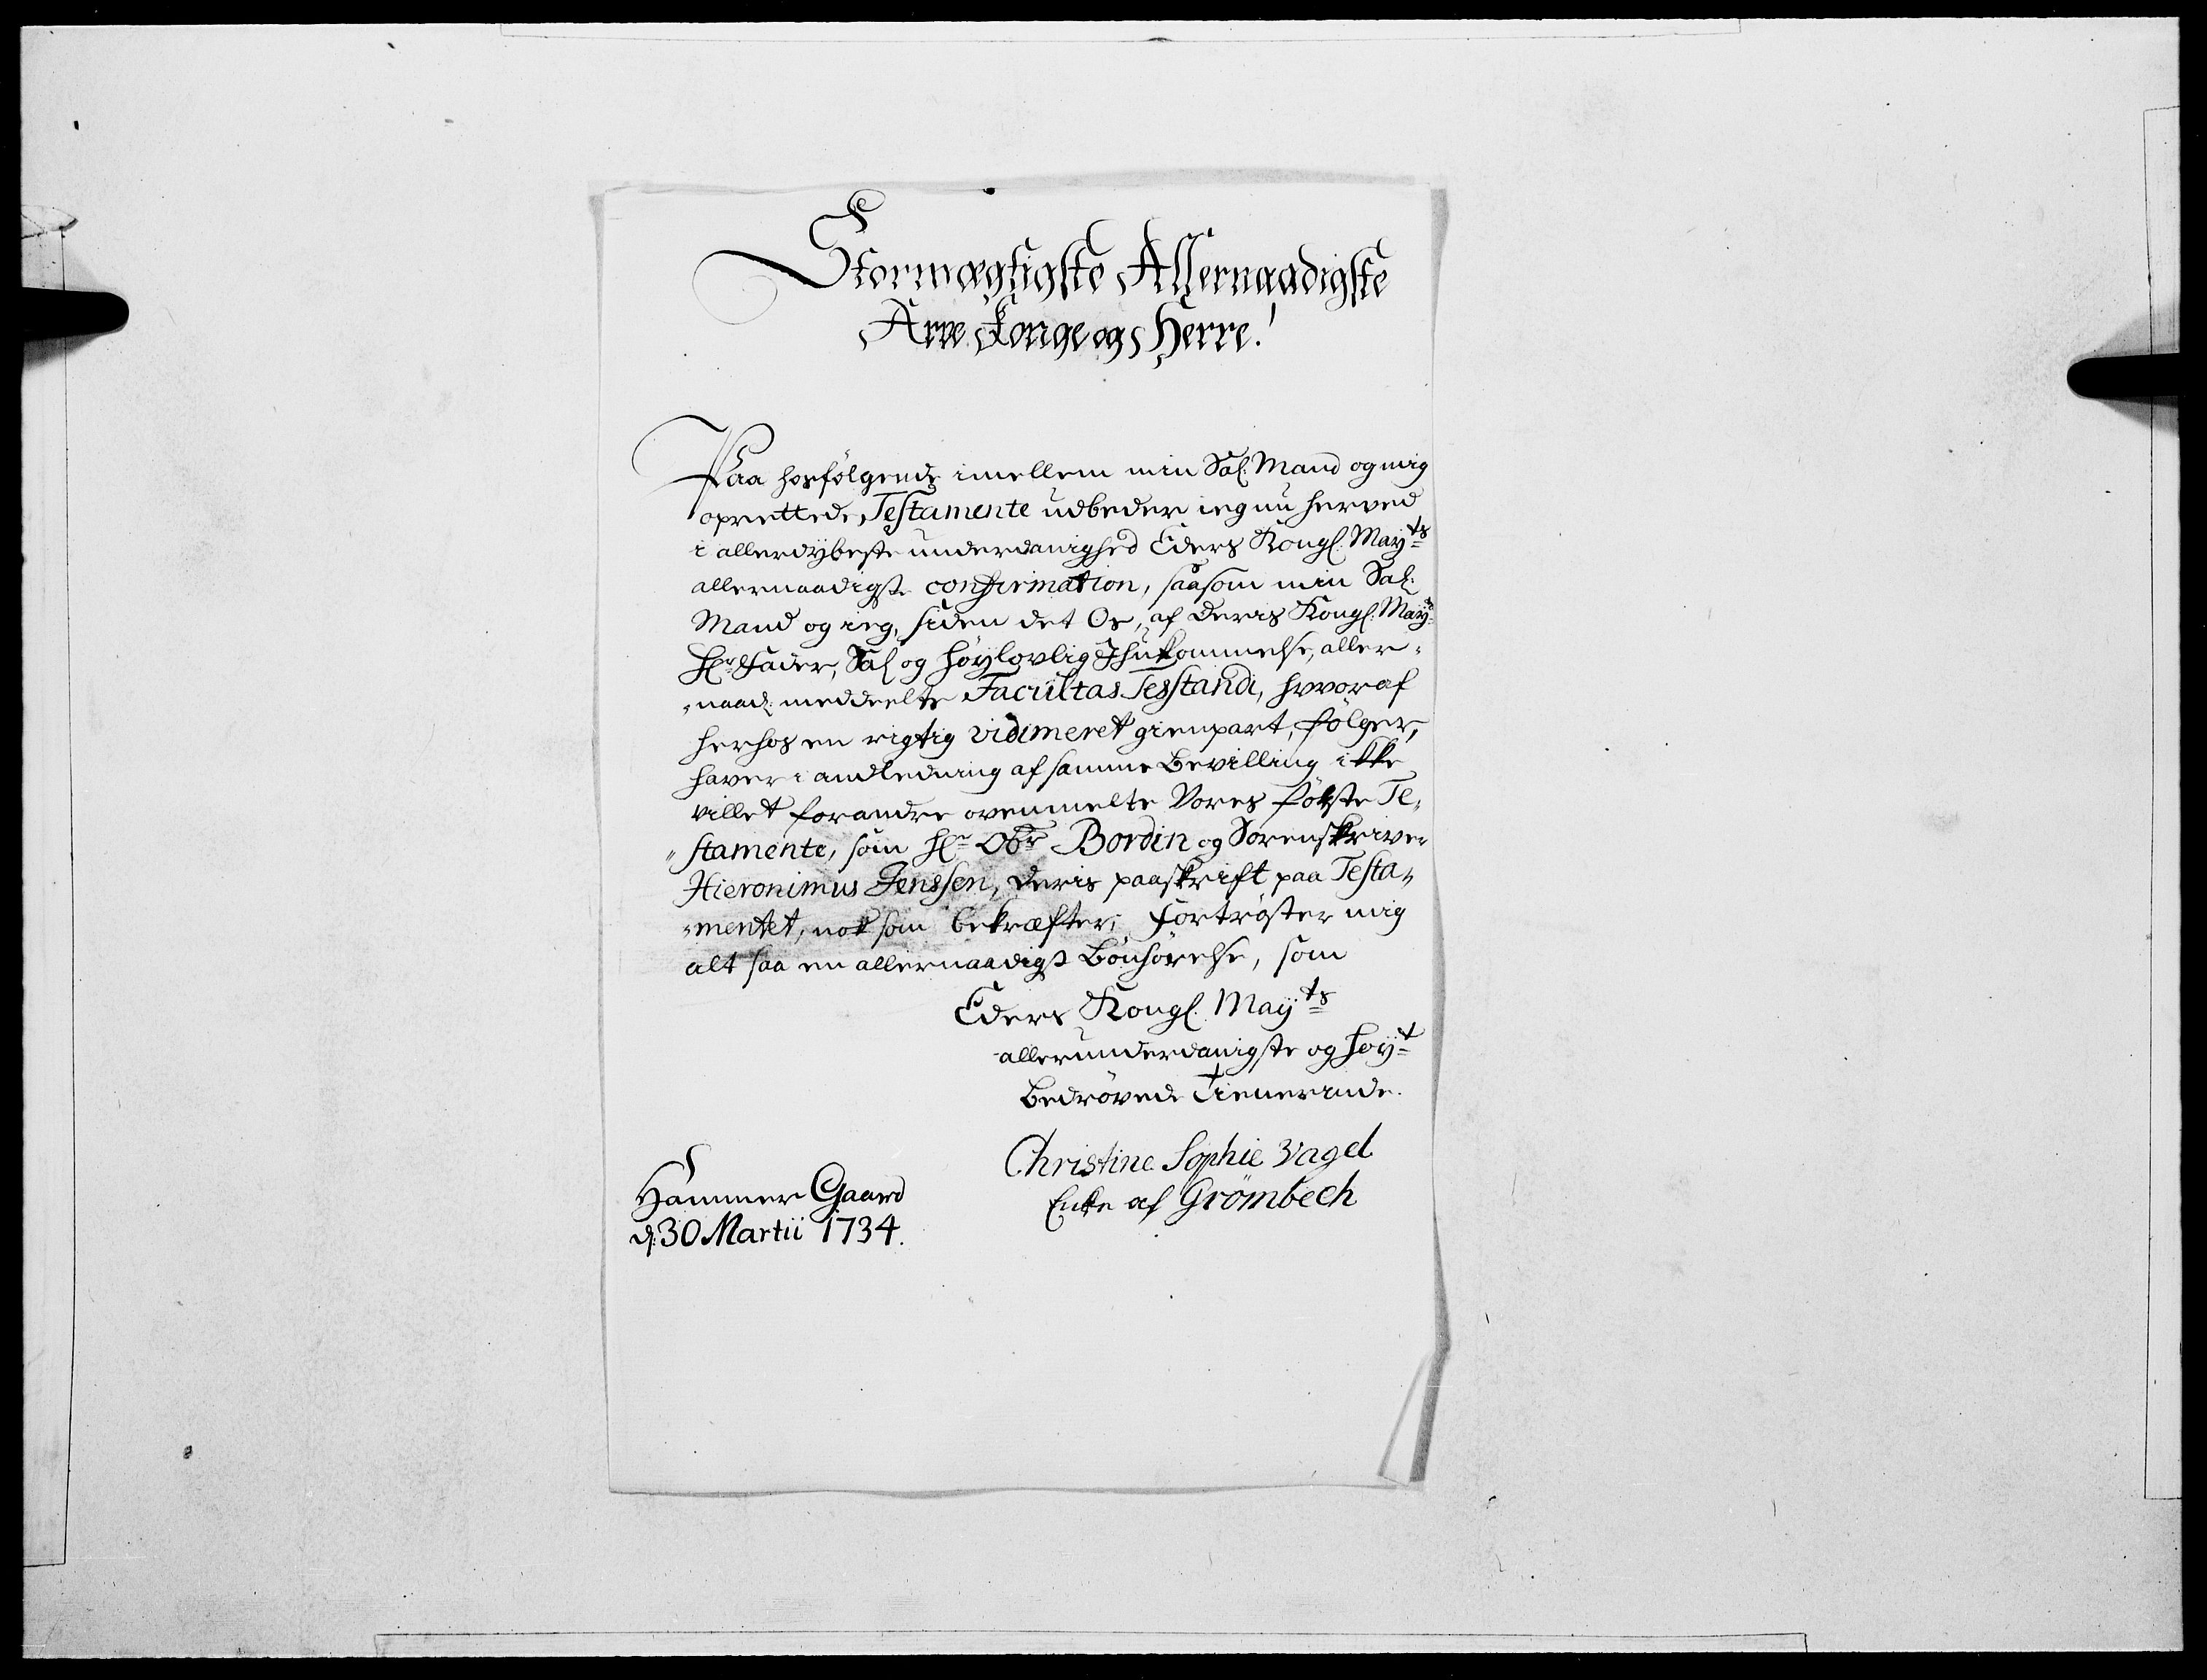 Stormægtigste Allernaadigste
Arve Konge og Herre!
Paa hosfölgende imellem min Sal: Mand og mig
oprettede Testamente udbeder ieg nu herved
i allerdybeste underdanighed Eders Kongl: Mayts
allernaadigste confirmation, saasom min Sal:
Mand og ieg, siden det Os, af Deris Kongl: Mayts
Hr Fader, Sal: og höylovlig Ihukommelse, aller-
-naad: meddeelte Facultas Testandi, hvoraf
herhos en rigtig vidimeret gienpart, fölger,
haver i andledning af samme Bevilling ikke
villet forandre ovenmelte Vores förste Te-
-stamente, som Hr Obr Bordin og Sorenskriver
Hieronimus Jenssen, deris paaskrift paa Testa-
-mentet, nok som bekræfter; Fortröster mig
alt saa en allernaadigst Bönhörelse, som
Eders Kongl: Mayts
allerunderdanigste og höyt
Bedrövede Tienerinde.
Christine Sophie Vagel
Enke af Grömbech
Hammer Gaard
d: 30 Martii 1734.